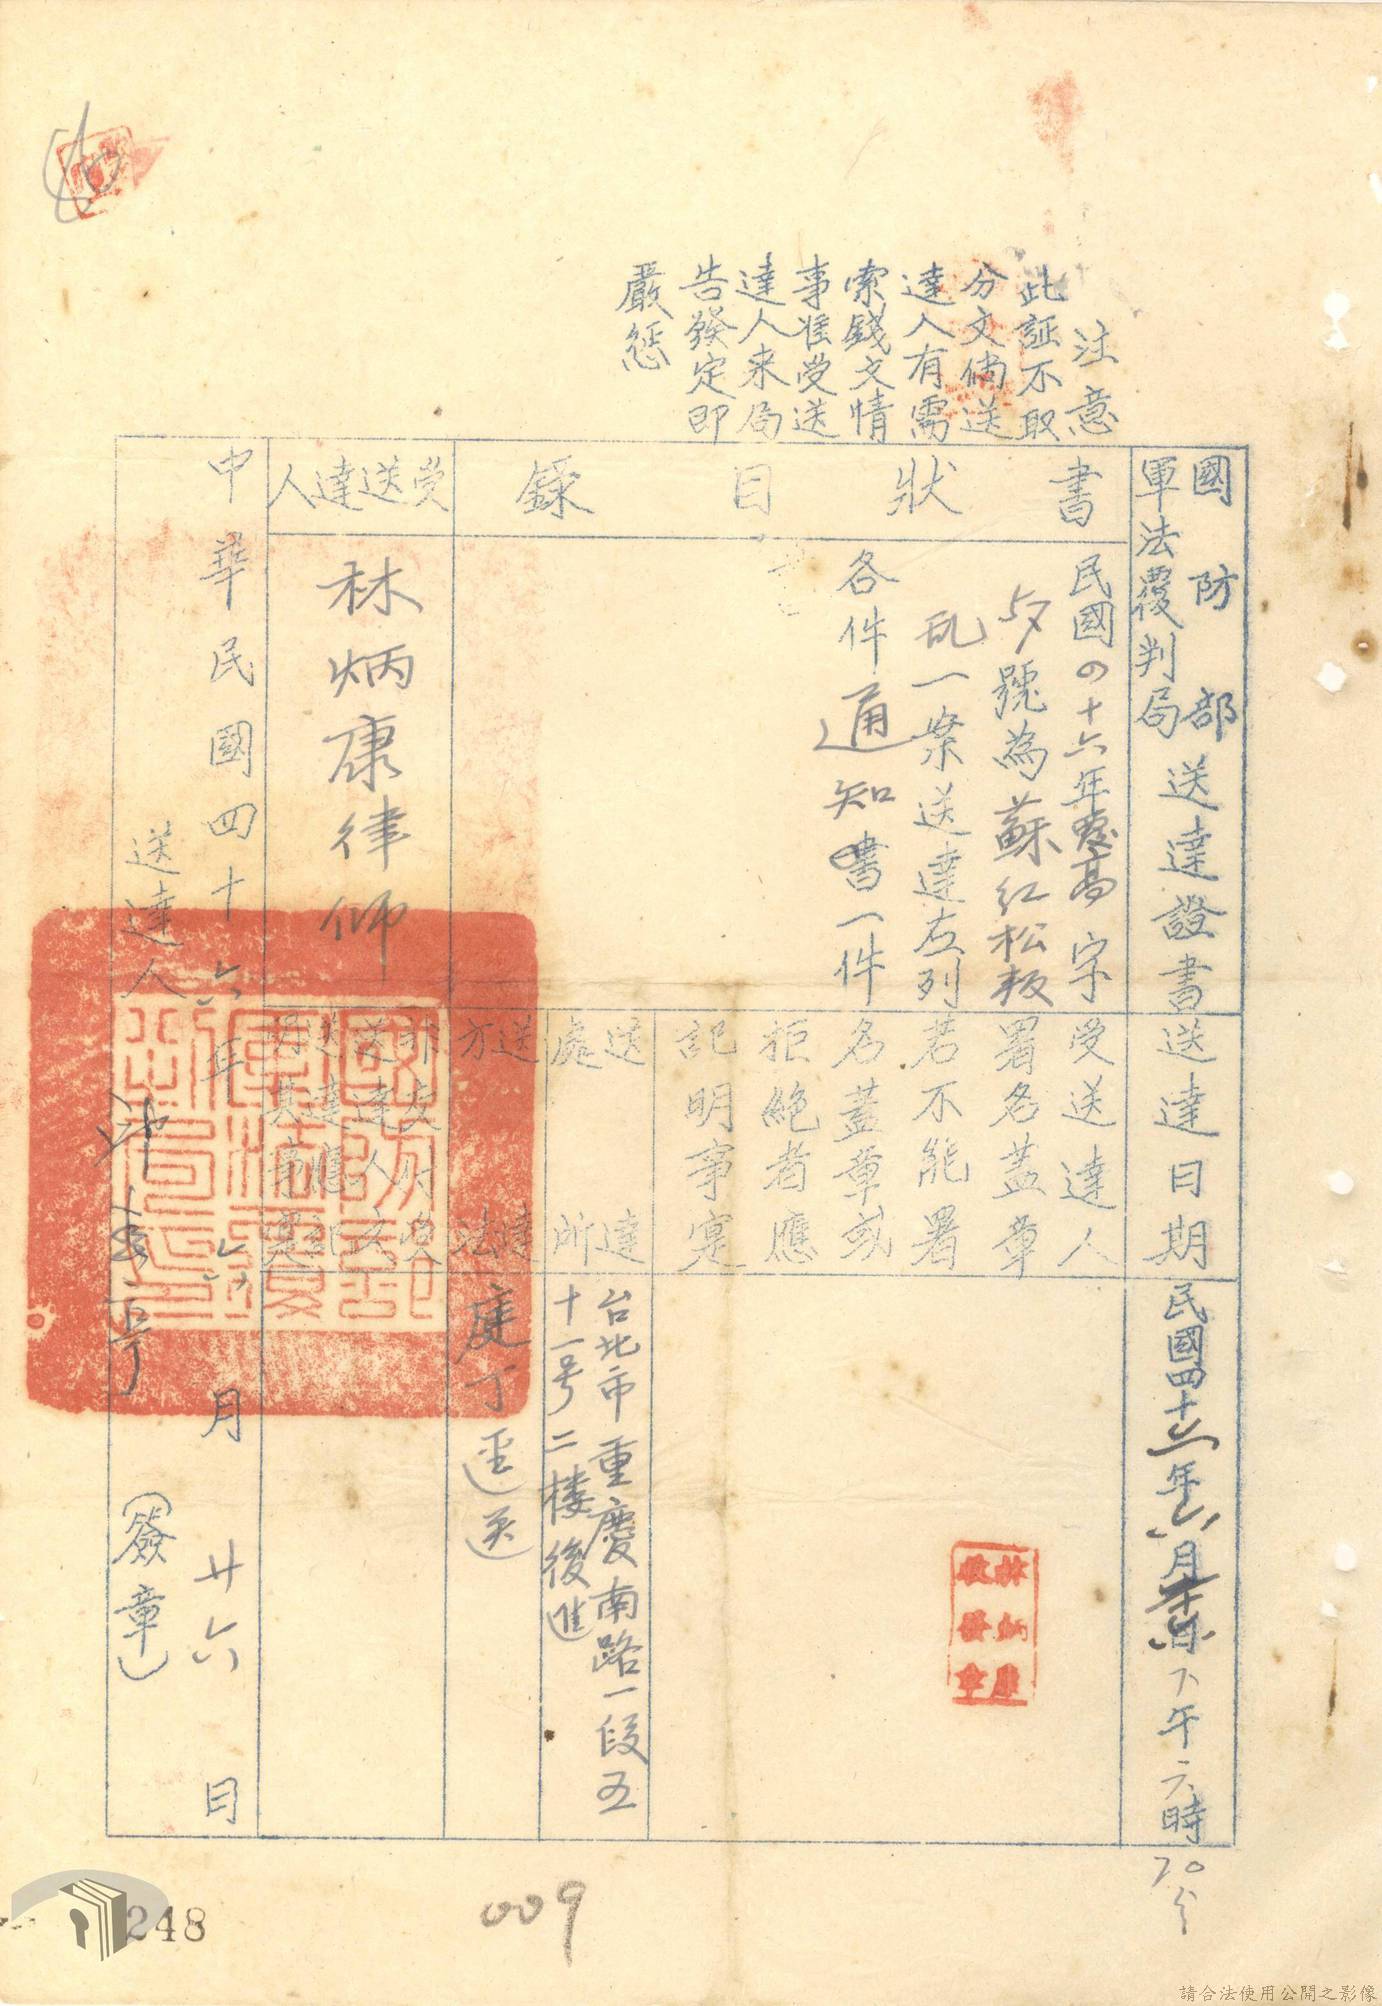 注意
此証不取
分文倘送
達人有需
索錢文情
事准受送
達人来局
告發定即
嚴懲
國防部
軍法覆判局
送達證書
送達日期
民國四十六年六月廿六日下午六時
20分
書狀目錄
民國四十六年覆高字
57號為蘇红松叛
乱一案送達左列
各件通知書一件
受送達人
署名蓋章
若不能署
名蓋章或
拒絶者應
記明事寔
林炳康
收發章
送達
處所
台北市重慶南路一段五
十一号二楼後進
送達
方法
庭丁逕送
受送達人
林炳康律师
非交付受
送達人之
送達應記
明其事寔
中華民國四十六年六月廿六日
送達人
(簽章)
009
248
請合法使用公開之影像